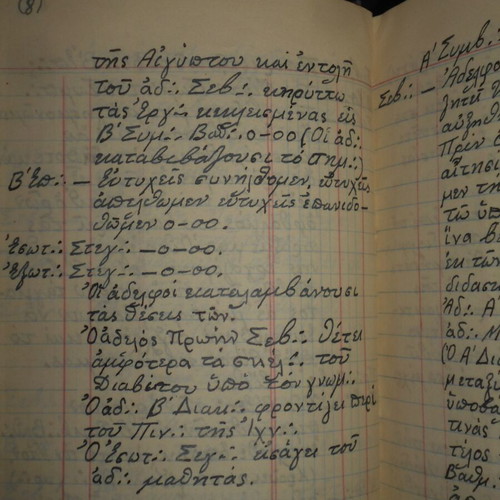 (8)
τῆς Αἰγύπτου καὶ ἐντολῇ
τοῦ ἀδ∴ Σεβ∴ κηρύττω
τὰς Ἐργ∴ κεκλεισμένας εἰς
Β΄ Συμ∴ Βαθ∴ 0-00 (Οἱ ἀδ∴
καταβιβάζουσι τὸ σημ∴)
Β΄ Ἐπ∴ — Εὐτυχεῖς συνήλθομεν, εὐτυχεῖς
ἀπέλθωμεν εὐτυχεῖς ἐπανιδο-
θῶμεν 0-00.
Ἐσωτ∴ Στεγ∴ — 0-00.
Ἐξωτ∴ Στεγ∴ — 0-00.
Οἱ ἀδελφοί καταλαμβάνουσι
τὰς θέσεις των.
Ὁ ἀδελφός Πρώην Σεβ∴ θέτει
ἀμφότερα τὰ σκέλ∴ τοῦ
Διαβήτου ὑπὸ τὸν γνωμ∴
Ὁ ἀδ∴ Β΄ Διακ∴ φροντίζει περί
τοῦ Πιν∴ τῆς Ἰχν∴
Ὁ Ἐσωτ∴ Στεγ∴ εἰσάγει τοῦ
ἀδ∴ μαθητάς.
Α΄ Συμβ∴
Σεβ∴ — Ἀδελφο
Πρὶν
αἴτησι
μεν τὴ
τῷ ὑπ
ἵνα β
ἐκ τῶν
διδασκ
Ἀδ∴ Α
ἀδ∴ Μ
(Ὁ Α΄ Δια
μεταξὺ
ὑποβά
τινὰς
τίμος
Βαθμ.